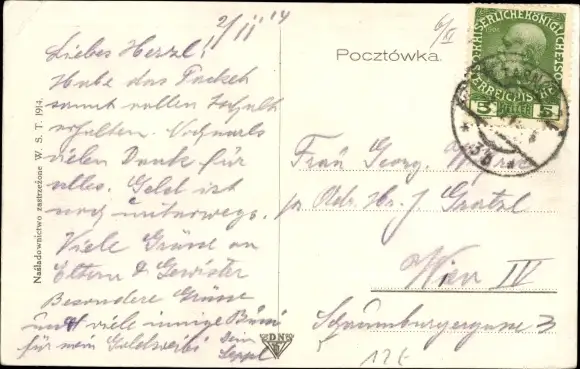 2/II 14
6/XI
Liebes Herzl!
Habe das Packet
samt vollen Inhalt
erhalten. Nochmals
vielen Dank für
alles. Geld ist
noch unterwegs.
Viele Grüsse an
Eltern & Gewister
Besondere Grüsse
und viele innige Bussi
für mein Goldweibi Dein
Seppl
Pocztówka.
KAISERLICHE KÖNIGLICHE
ÖSTERREICHISCHE
5 HELLER 5
Frau Georg
per Adr. Hr. J
Wien IV
Schaumburgergasse 3
12€
DNK
Naśladownictwo zastrzeżone W. S. T. 1914.